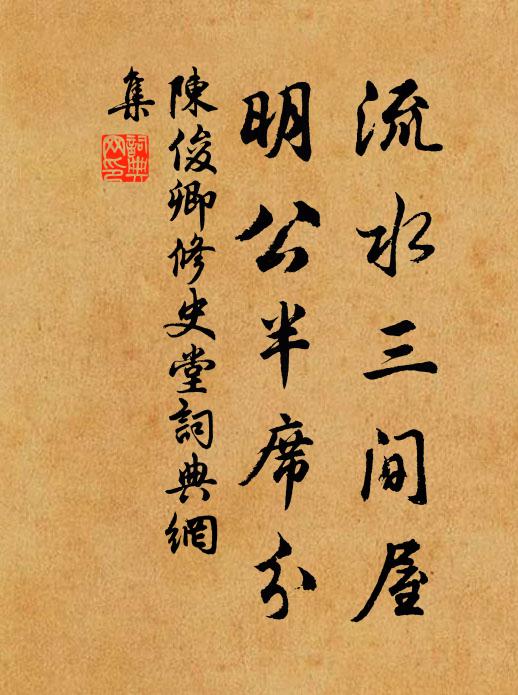 流水三间屋
明公半席分
陳俊卿修史堂詞典網
集
詞典網印